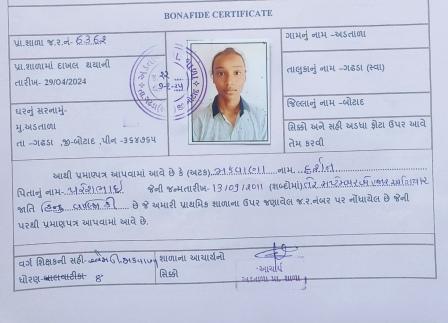 BONAFIDE CERTIFICATE
પ્રા.શાળા જ.ર.નં- ૬૩૬૨
ગામનું નામ -અડતાળા
પ્રા.શાળામાં દાખલ થયાની
તારીખ- 29/04/2024
તાલુકાનું નામ -ગઢડા (સ્વા)
જિલ્લાનું નામ -બોટાદ
ઘરનું સરનામું-
મુ.અડતાળા
તા -ગઢડા ,જી-બોટાદ ,પીન -૩૬૪૭૬૫
સિક્કો અને સહી અડધા ફોટા ઉપર આવે
તેમ કરવી
આથી પ્રમાણપત્ર આપવામાં આવે છે કે (અટક) મકવાણા નામ દર્શન
પિતાનું નામ- જેની જન્મતારીખ- 13/09/2011 (શબ્દોમાં)
જાતિ હિન્દુ છે જે અમારી પ્રાથમિક શાળાના ઉપર જણાવેલ જ.ર.નંબર પર નોંધાયેલ છે જેની
પરથી પ્રમાણપત્ર આપવામાં આવે છે.
વર્ગ શિક્ષકની સહી- શાળાના આચાર્યનો
ધોરણ-બાલવાટીકા- 8 સિક્કો
આચાર્ય
અડતાળા પ્રા. શાળા